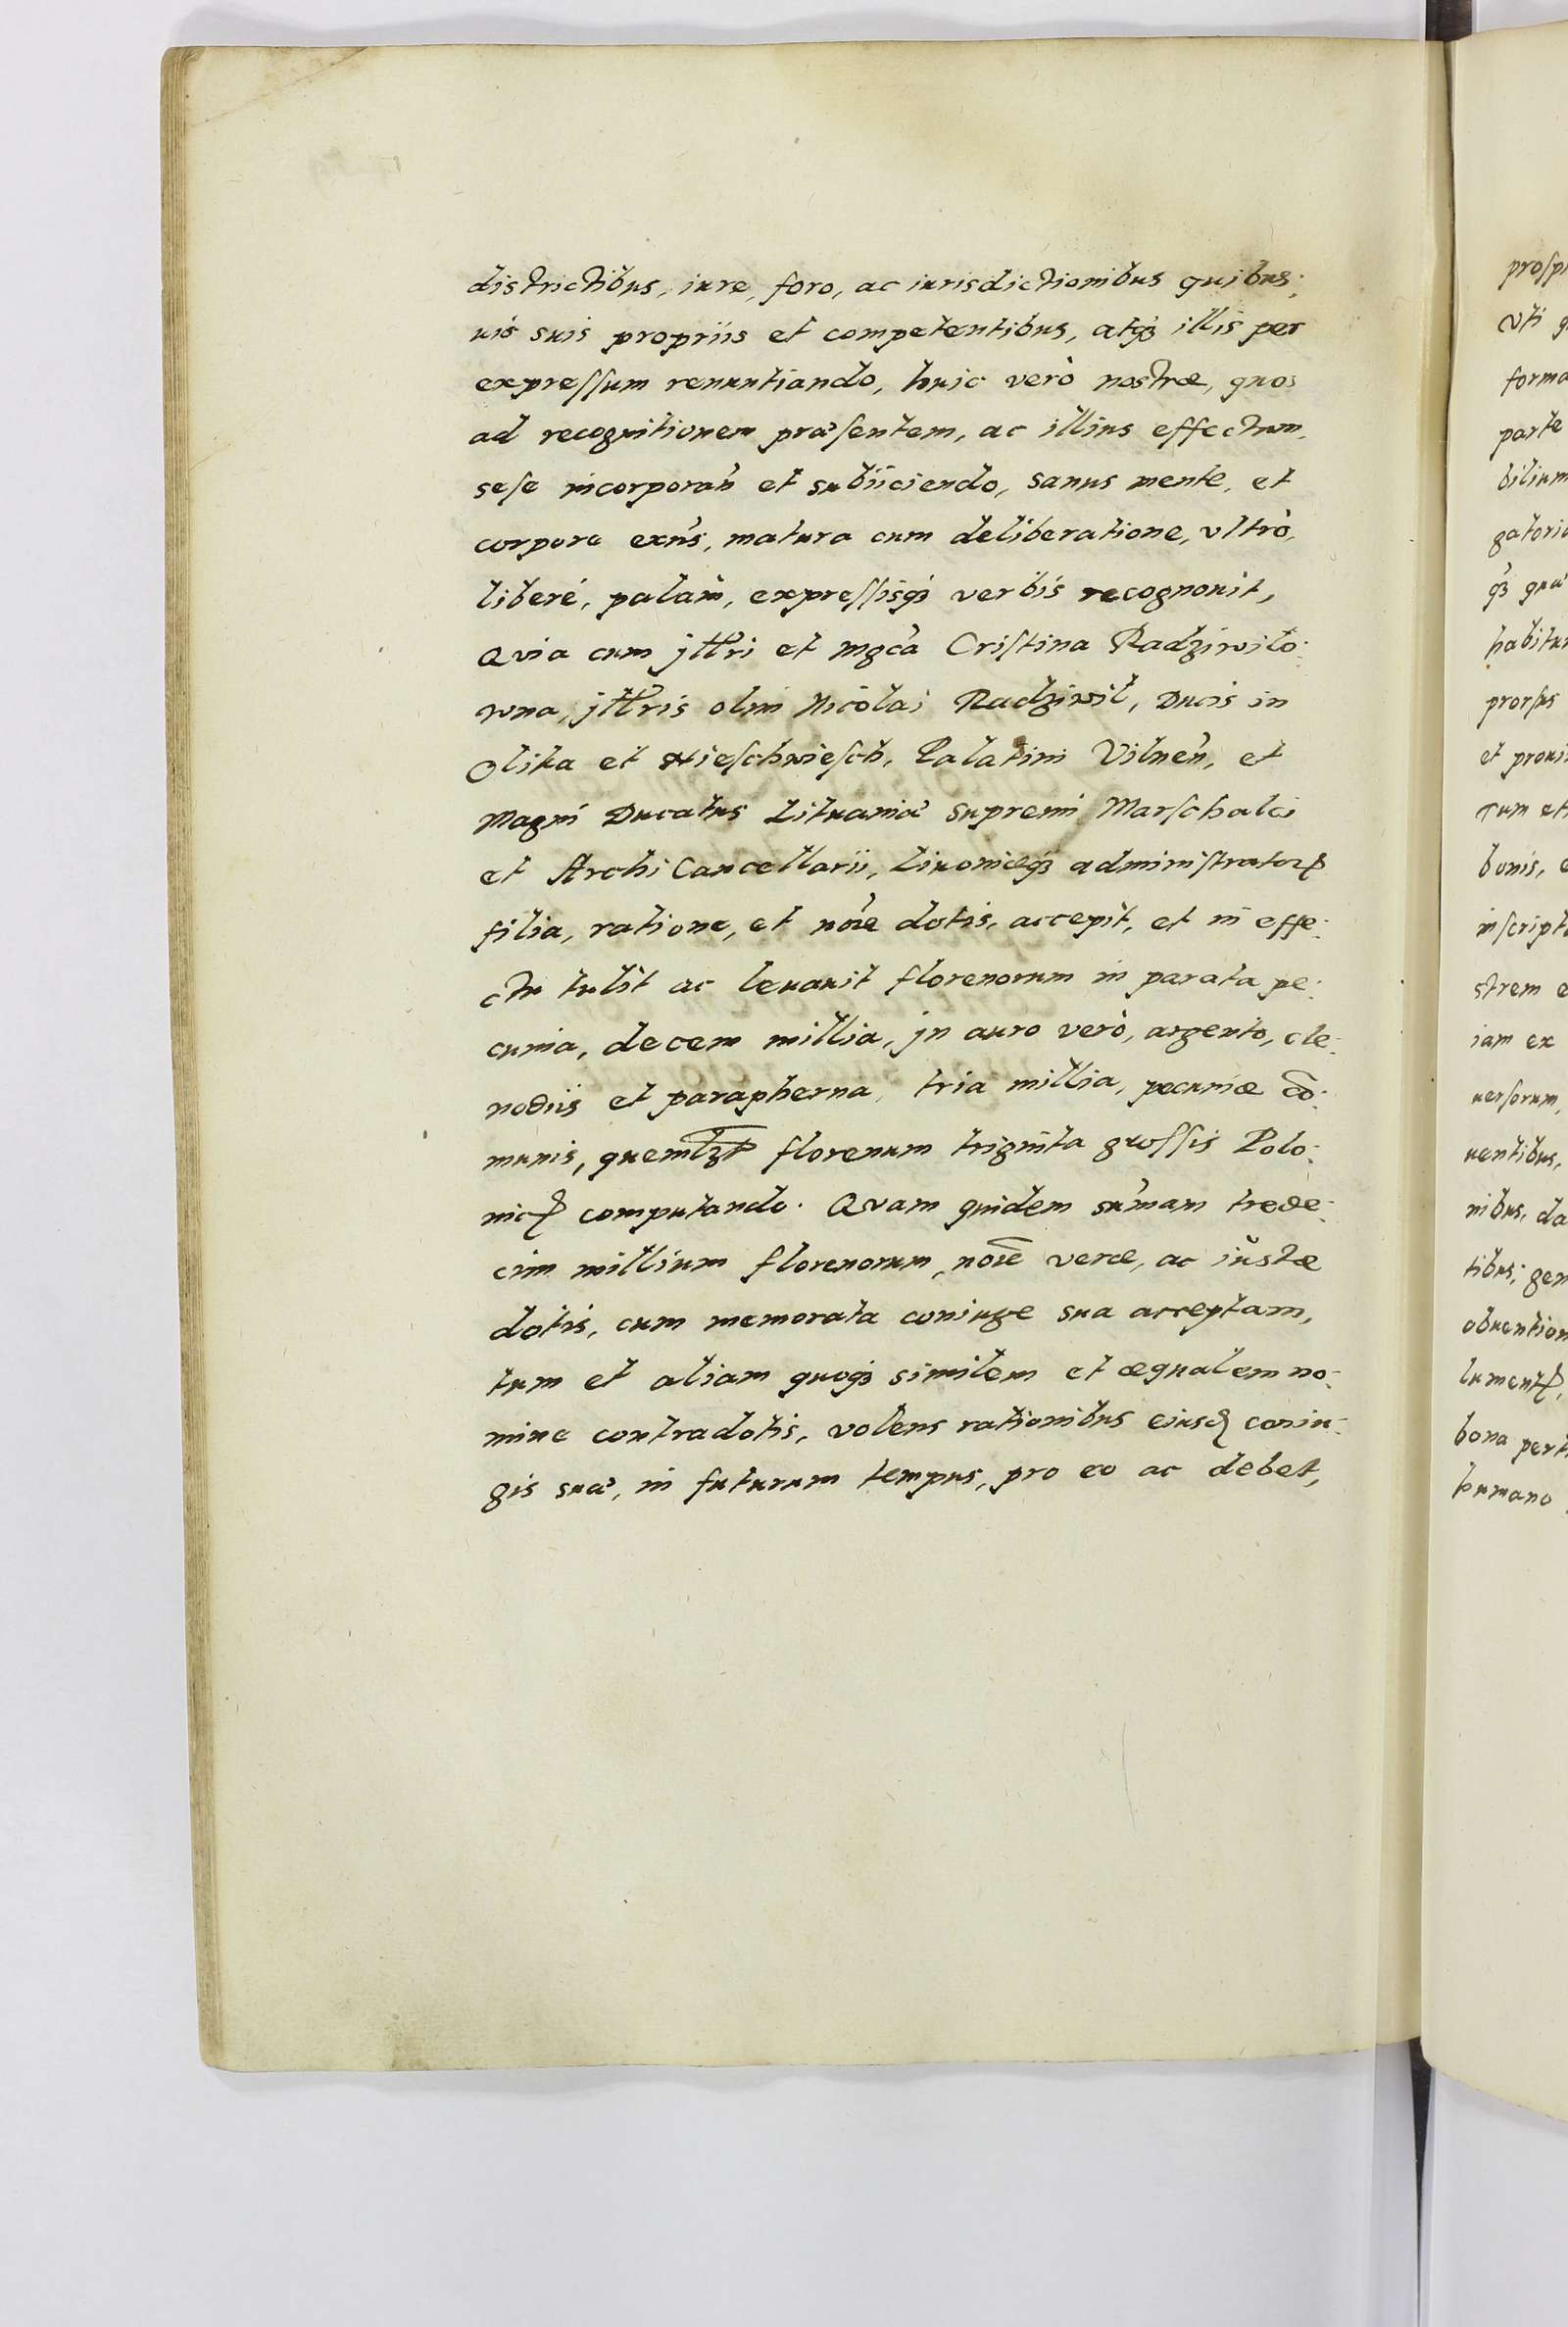 districtibus, iure, foro, ac iurisdictionibus quibus:
uis suis propriis et competentibus, atqꝫ illis per
expreſſum renuntiando, huic verò nostræ, quo:
ad recognitionem præſentem, ac illius effectum,
seſe incorporan̄ et subiiciendo, sanus mente, et
corpore exn̄s, matura cum deliberatione, vltrò,
liberé, palàm, expreſſisqꝫ verbis recognouit,
Quia cum jllri et mgcá Criſtina Radziwilo:
wna, jllris olim Nicolai Radziwil, Ducis in
Olika et Nieſchwieſch, Palatini Vilnen̄, et
Magni Ducatus Lituaniæ supremi Marſchalci
et Archi Cancellarii, Liuoniæqꝫ adminiſtratorꝭ
filia, ratione, et nōie dotis, accepit, et in effe:
ctu tulit ac leuauit florenorum in parata pe:
cunia, decem millia, jn auro verò, argento, cle:
nodiis et parapherna, tria millia, pecuniæ cō:
munis, quemlꝫt florenum triginta groſſis Polo:
nicꝭ computando. Quam quidem sum̄am trede:
cim millium florenorum, nōie veræ, ac iustæ
dotis, cum memorata coniuge sua acceptam,
tum et aliam quoqꝫ similem et æqualem no:
mine contradotis, volens rationibus eiusꝺ coniu:
gis suæ, in futurum tempus, pro eo ac debet,
vti
forma
parte
bilium
gatoria
qꝫ
prorſus
bonis,
iam ex
uerſorum,
uentibus,
nibus, da
tibus;
lumentꝭ,
bona
humano